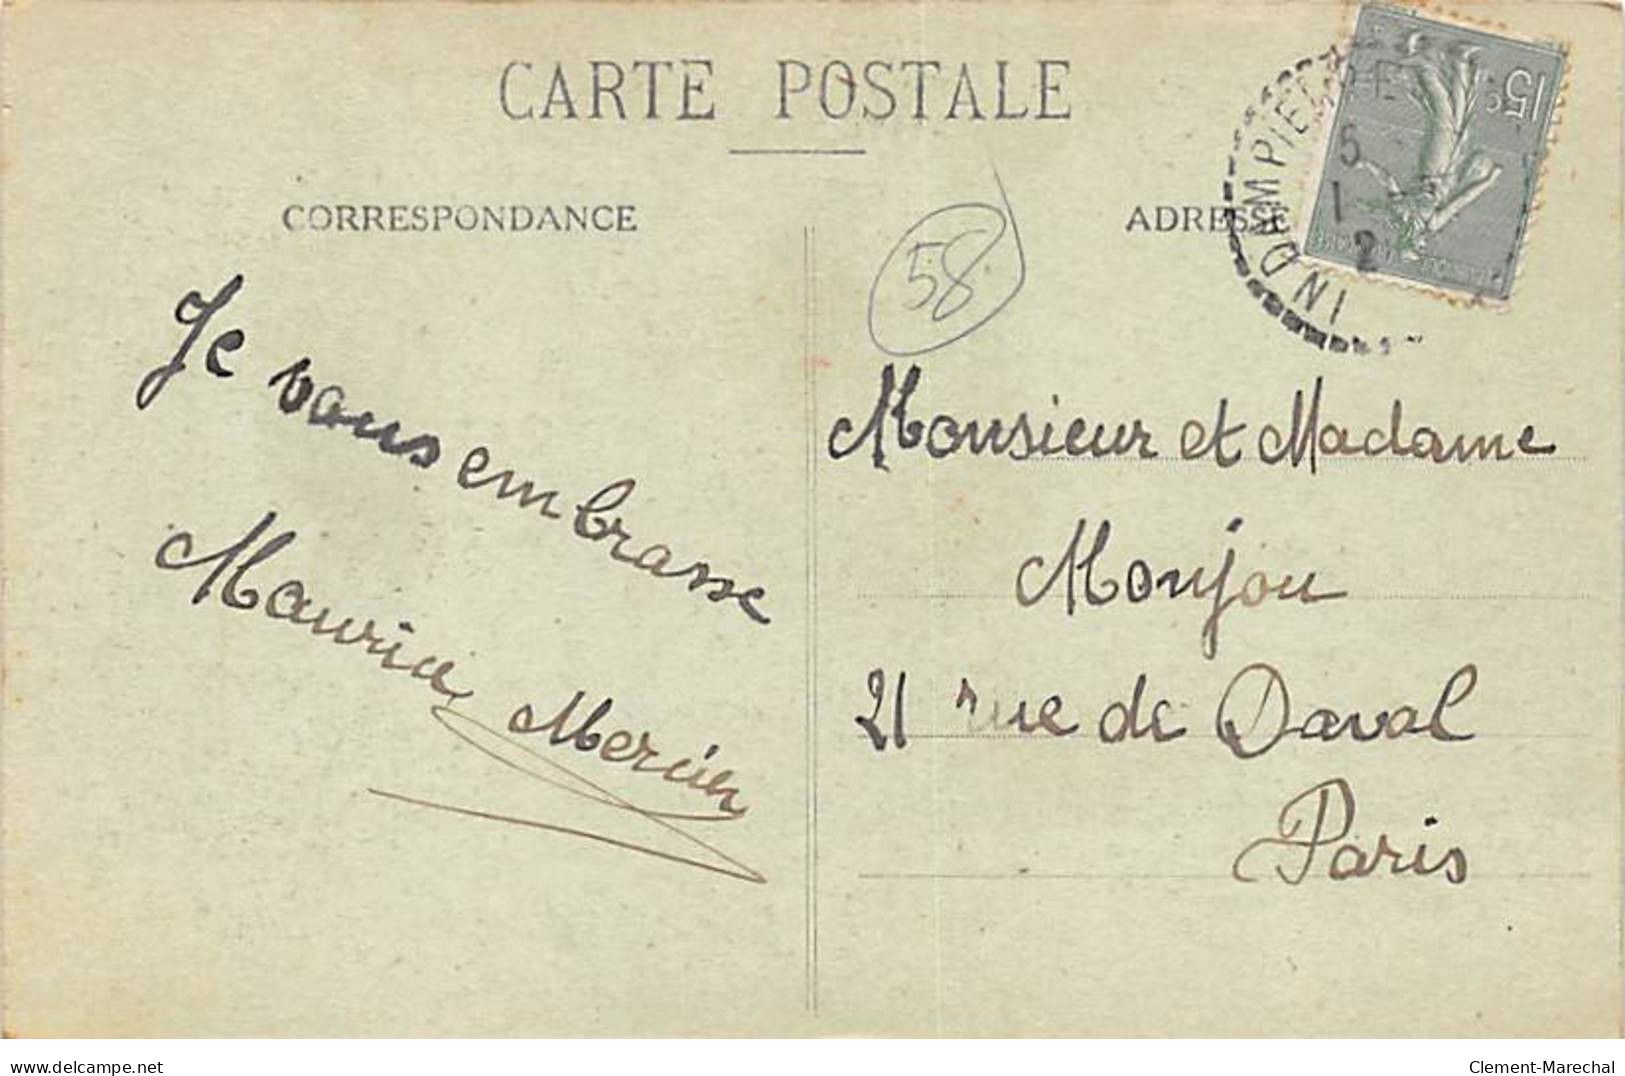 CARTE POSTALE
CORRESPONDANCE
ADRESSE
58
15c
5
1
2
Je vous embrasse
Maurice Mercier
Monsieur et Madame
Monjou
21 rue de Daval
Paris
delcampe.net
Clement-Marechal